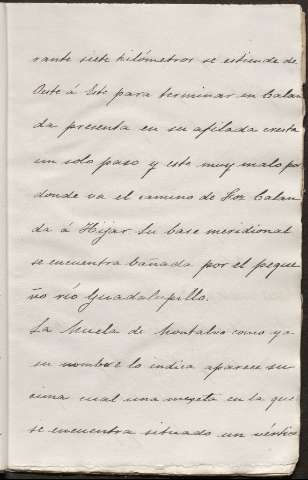 rante siete kilómetros se estiende de
Oeste á Este para terminar en Calan
da presenta en su afilada cresta
un solo paso y este muy malo por
donde va el camino de Foz Calan
da á Hijar. Su base meridional
se encuentra bañada por el peque
ño río Guadalupillo.
La Muela de Montalvo como ya
su nombre lo indica aparece su
cima cual una meseta en la que
se encuentra situado un vértice